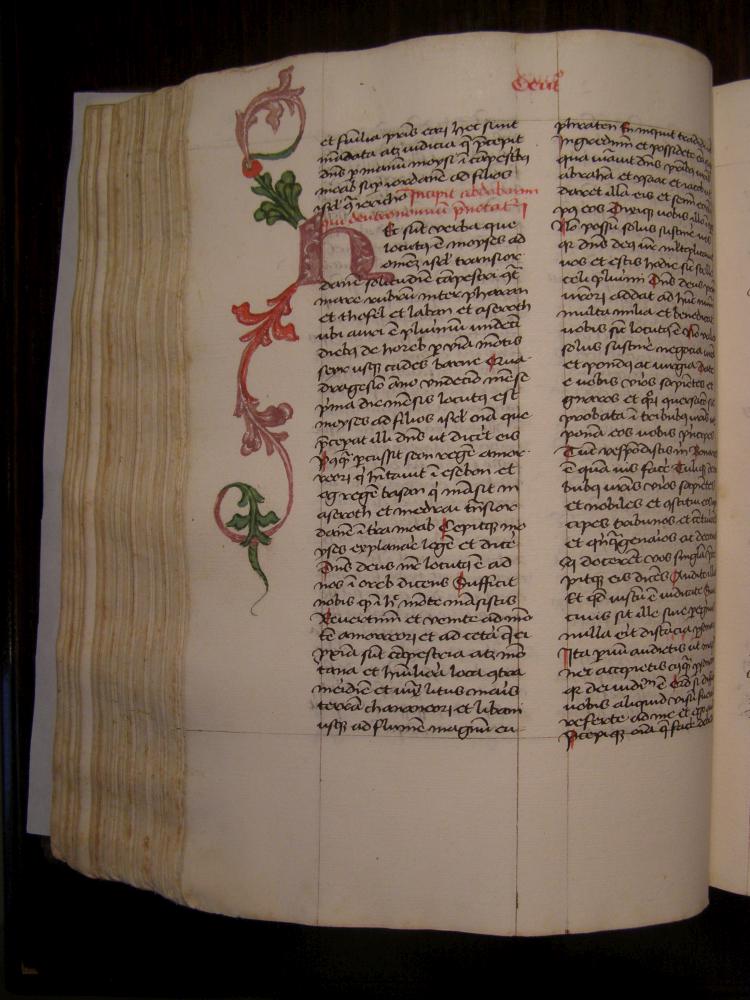 Deut
et familia patris eorum hec sunt
mandata atque iudicia que precepit
dns p manum moysi i campestribus
moab supra iordanem ad filios
isrl
Incipit elleaddabarim
qui deuteronomium prenotatur
Hec sunt verba que
locutus est moyses ad
omnem isrl trans ior
danem in solitudine campestri contra
mare rubrum inter pharan
et thofel et laban et aseroth
ubi auri est plurimum undecim
diebus de horeb per viam montis
seyr usque cades barne Quadra
gesimo anno undecimo mense
prima die mensis locutus est
moyses ad filios isrl omnia que
preceperat illi dns ut diceret eis
Postquam percussit seon regem amor
reorum qui habitavit in esebon et
og regem basan qui mansit in
aseroth et in edrai trans ior
danem in terra moab Cepitque mo
yses explanare legem et dicere
Dns deus noster locutus est ad
nos in oreb dicens Sufficit
vobis quod in hoc monte mansistis
Revertimini et venite ad mon
tem amorreorum et ad cetera que ei
proxima sunt campestria atque mon
tana et humiliora loca contra
meridiem et iuxta litus maris
terram chananeorum et libani
usque ad flumen magnum eu
phraten En inquit tradidi
Ingredimini et possidete eam
qua iuravit dns patribus vris
abraham et ysaac et iacob
daret illa eis et semini eorum
post eos Dixique vobis illo
Non possum solus sustinere vos
quia dns deus vester multiplicavit
vos et estis hodie sicut stelle
celi plurimi Dns deus
addat ad hunc numerum
multa milia et benedicat
vobis sicut locutus est Non valeo
solus sustinere negotia vestra
et pondus ac iurgia Date
e vobis viros sapientes et
gnaros et quorum conversatio sit
probata in tribubus vestris ut
ponam eos vobis principes
Tunc respondistis mihi Bona res
est quam vis facere Tulique de
tribubus vestris viros sapientes
et nobiles et constitui eos
tribunos et centuriones
et quinquagenarios ac decanos
qui docerent vos singula
precepique eis dicens Audite illos
Et quod iustum est iudicate Sive
civis sit ille sive peregrinus
nulla erit distancia personarum
Ita parvum audietis ut magnum
nec accipietis cuiusquam personam
quia dei iudicium est Quod si difficile
vobis aliquid visum fuerit
referte ad me et ego audiam
Precepique omnia que facere deberetis